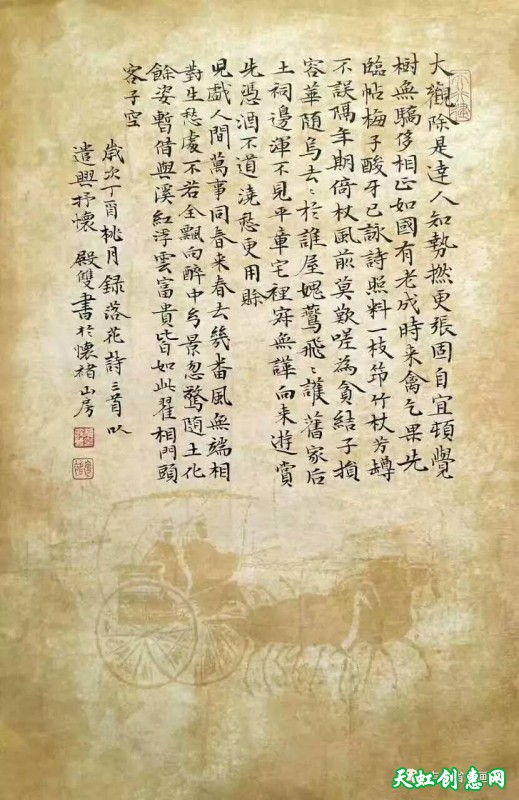 大觀除是達人知勢撚更張固自宜頓覺
樹無驕侈相正如國有老成時来禽乞果先
臨帖梅子酸牙已詠詩照料一枝筇竹杖芳罇
不誤隔年期倚杖風前莫歎嗟為貪結子損
容華随烏去〻於誰屋媿鶯飛〻護舊家后
土祠邊渾不見平章宅裡寂無譁向来遊賞
先憑酒不道澆愁更用賒
児戲人間萬事同春来春去幾番風無端相
對生愁處不若全飄向醉中景忽驚随土化
餘姿暫借與溪紅浮雲富貴皆如此翟相門頭
客子空
歲次丁酉桃月録落花詩三首以
遣興抒懷 殿雙書於懷褚山房
天虹创惠网